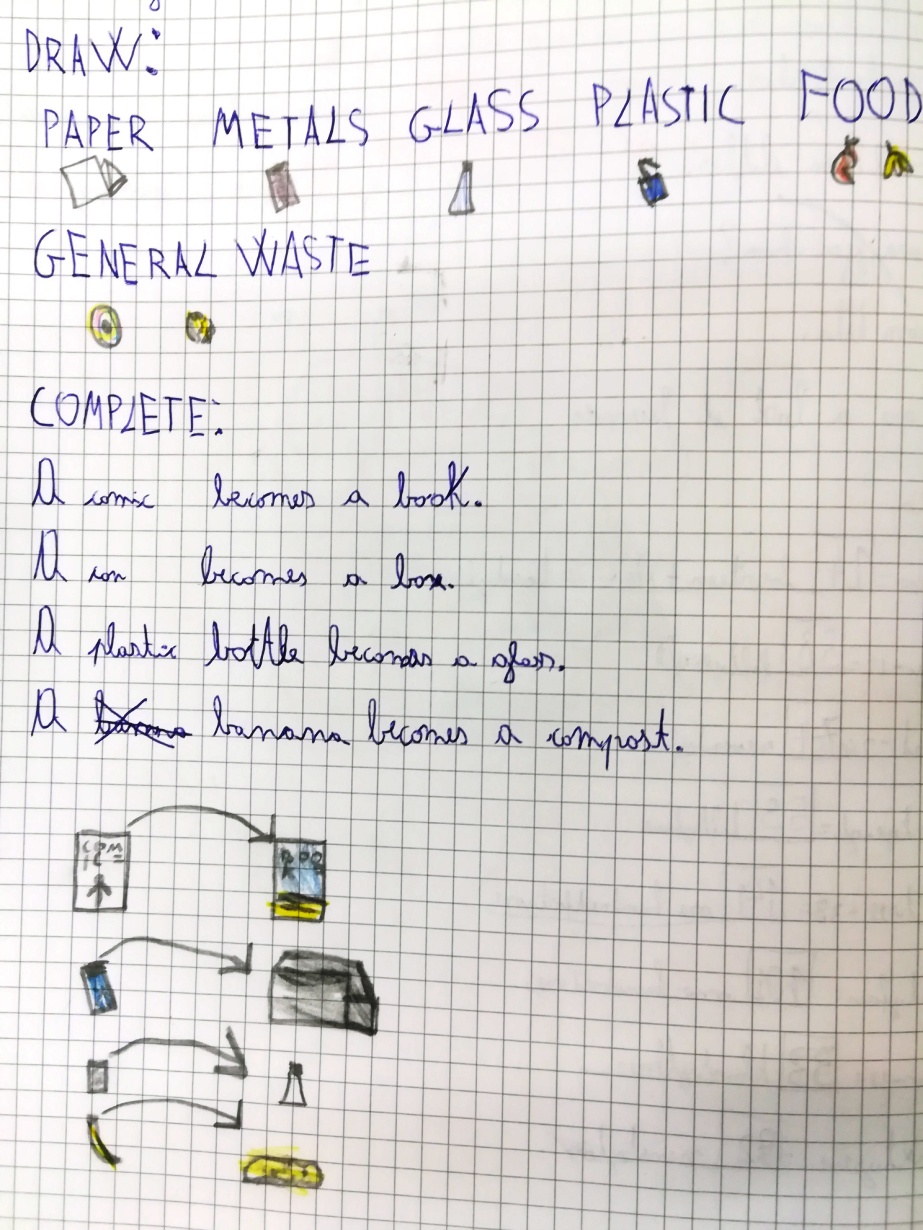 DRAW:
PAPER METALS GLASS PLASTIC FOOD
GENERAL WASTE
COMPLETE:
A comic becomes a book.
A can becomes a box.
A plastic bottle becomes a glass.
A banana becomes a compost.
COM
IC
BOO
K